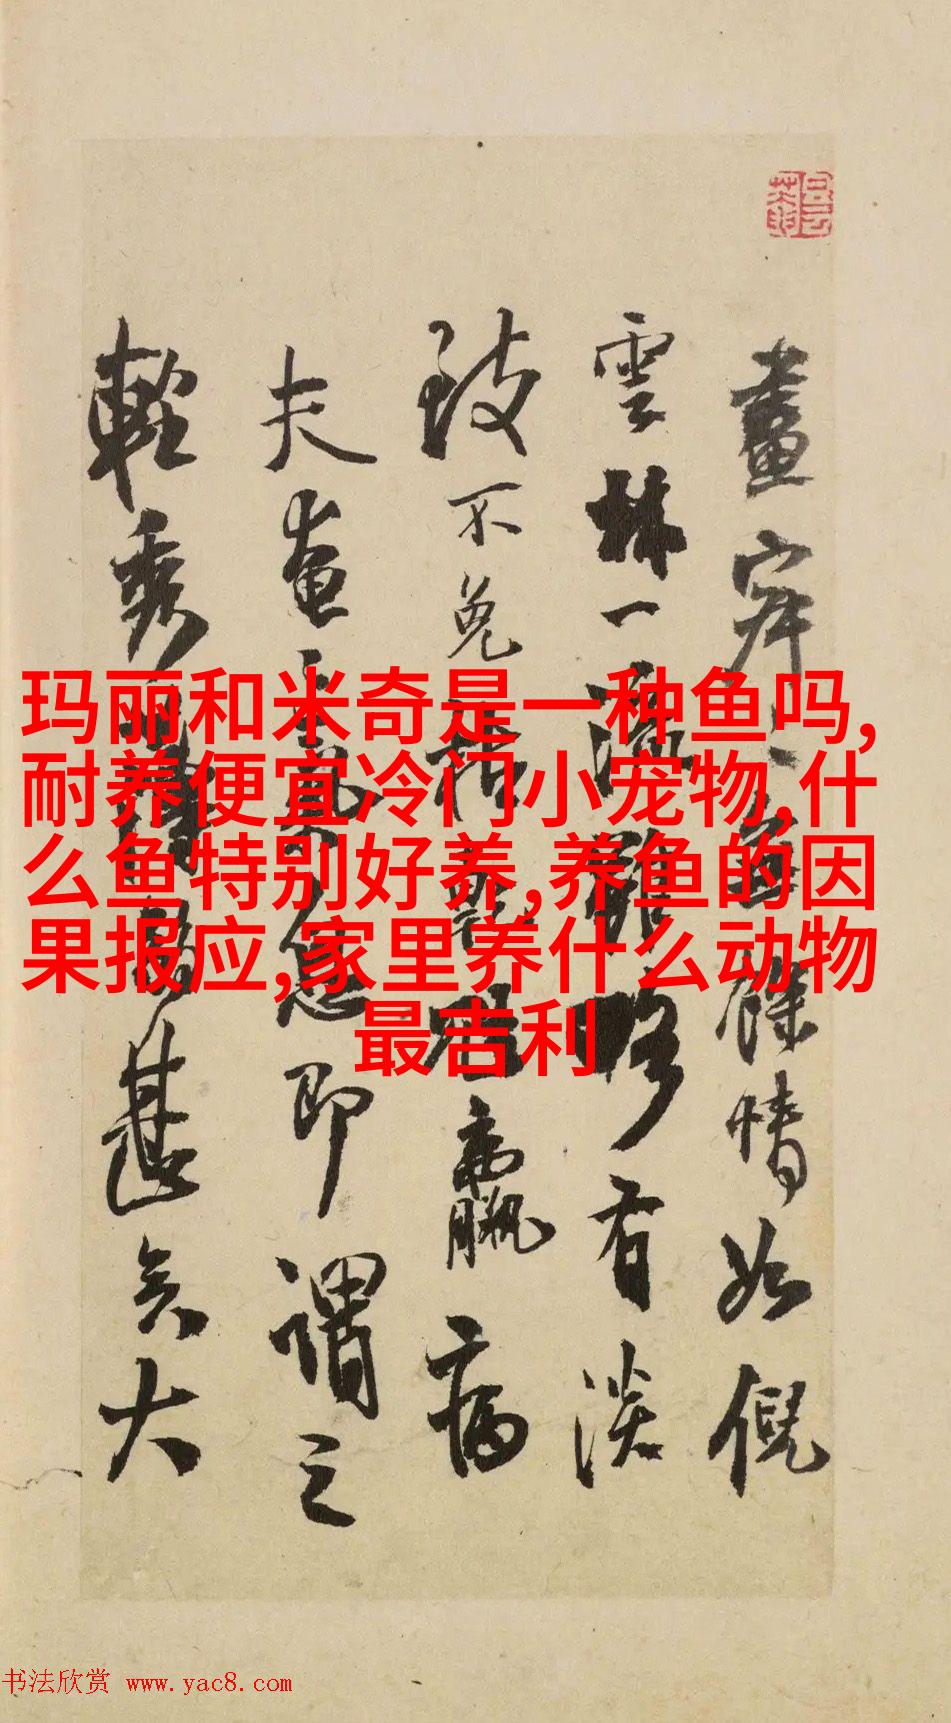 畫寂寂無餘情如倪
雲林一濕雖略有淡
致不免
羸病
夫畫
即謂之
輕秀
甚矣大
玛丽和米奇是一种鱼吗,
耐养便宜冷门小宠物,什
么鱼特别好养,养鱼的因
果报应,家里养什么动物
最吉利
书法欣赏 www.yac8.com